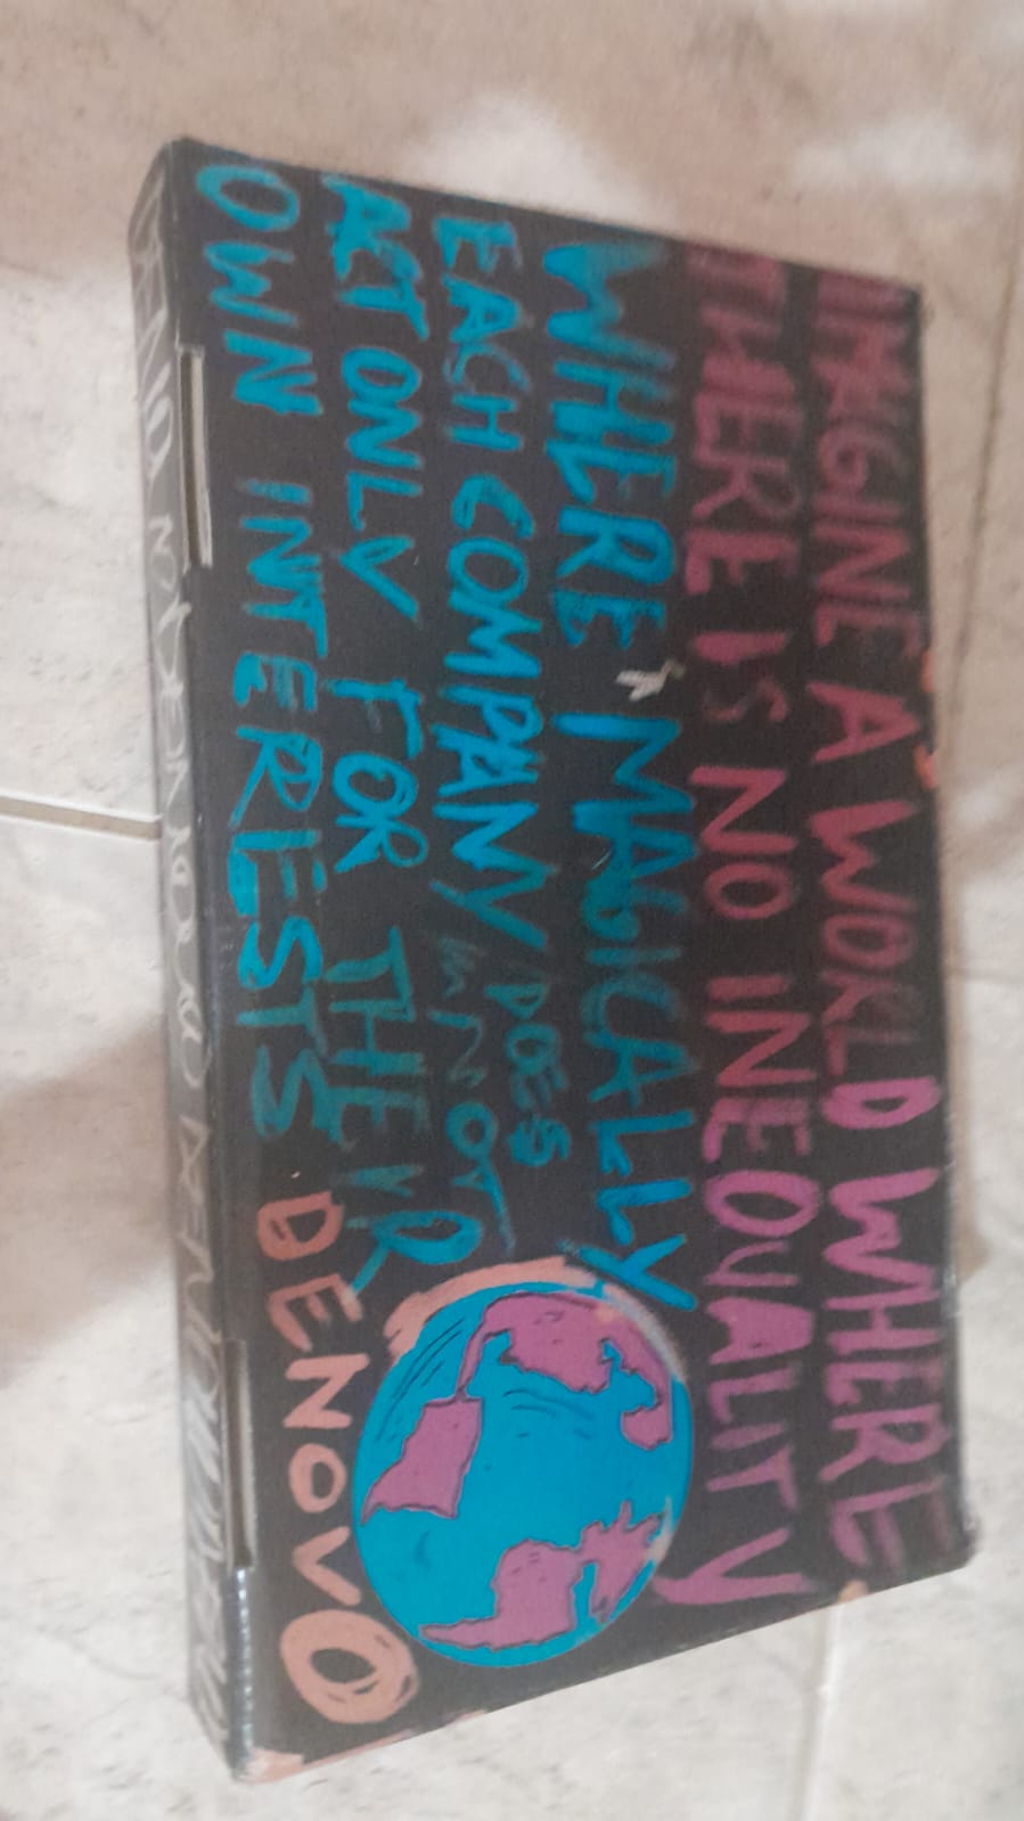 IMAGINE A WORLD WHERE
THERE IS NO INEQUALITY
WHERE MAGICALLY
EACH COMPANY DOES
NOT
ACT ONLY FOR THEIR
OWN INTERESTS
DENOVO